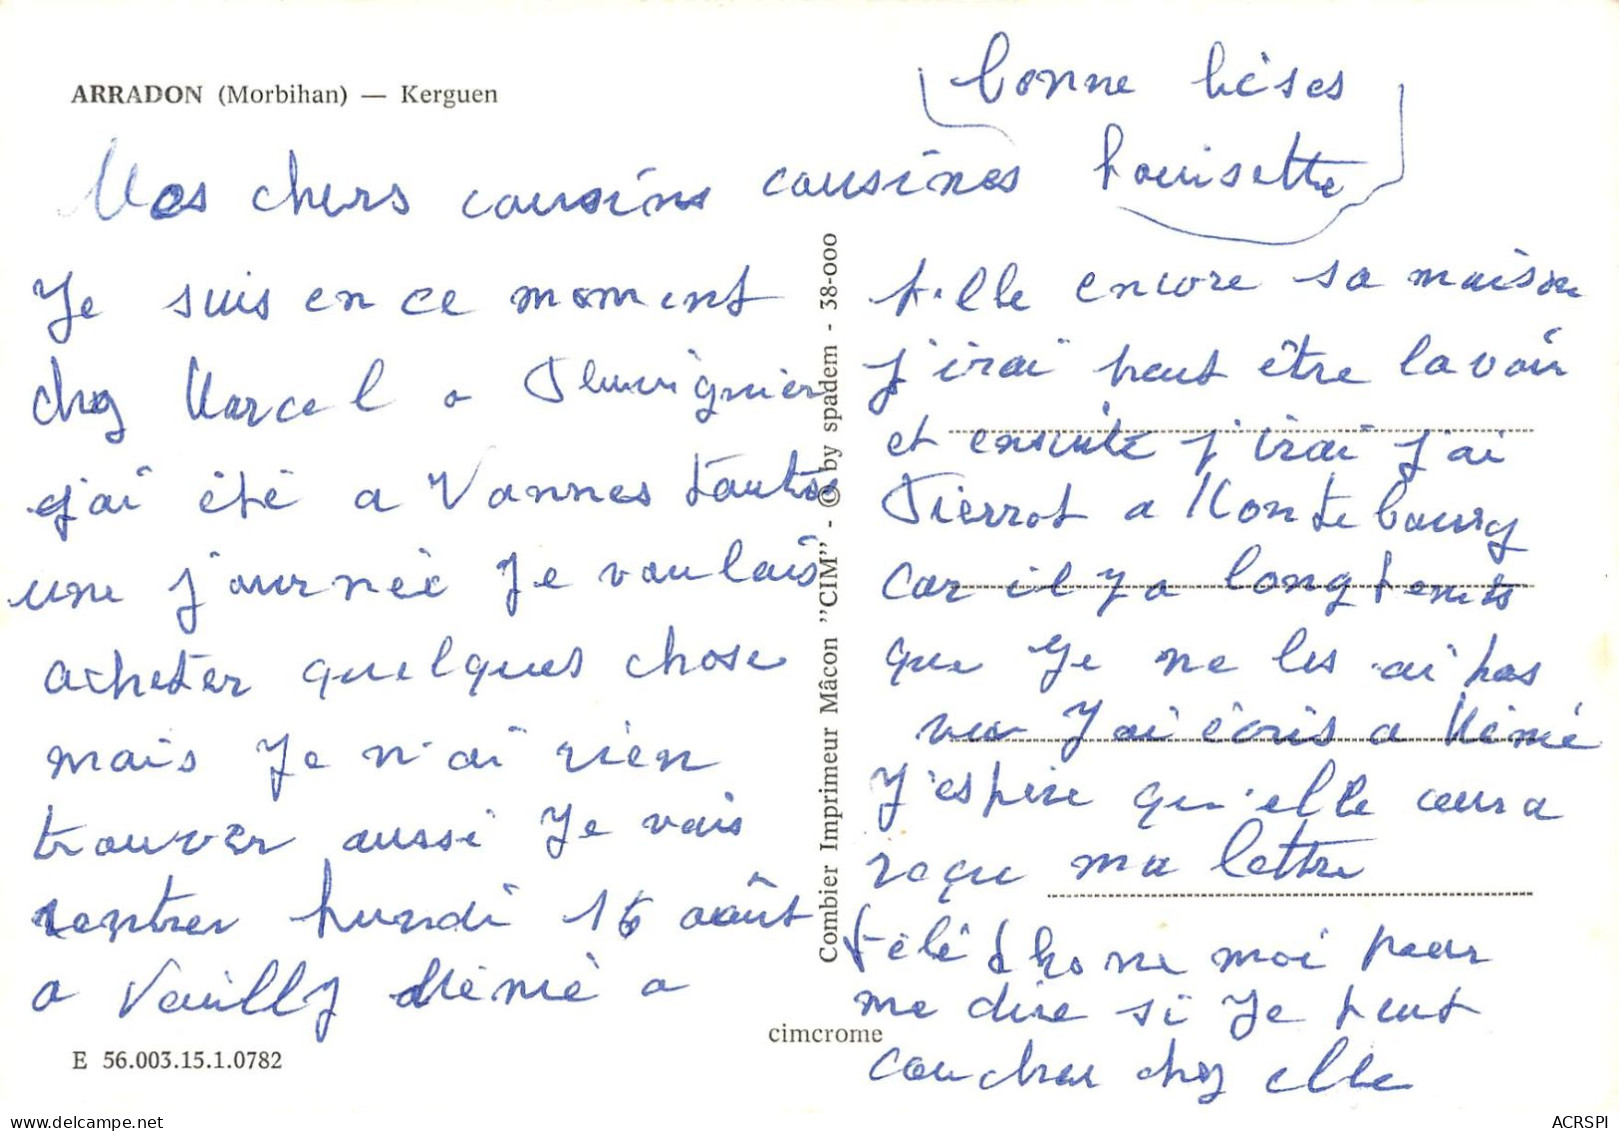 ARRADON (Morbihan) — Kerguen
Mes chers cousins cousines
Je suis en ce moment
chez Marcel a Pluvignier
j'ai été a Vannes toute
une journée Je voulais
acheter quelques chose
mais Je n'ai rien
trouver aussi Je vais
rentrer lundi 16 août
a Vailly Mémé a
E 56.003.15.1.0782
Combier Imprimeur Mâcon "CIM" - © by spadem - 38-000
cimcrome
bonne bises
Louisette
t-elle encore sa maison
j'irai peut être la voir
et ensuite j'irai j'ai
Pierrot a Montebourg
car il y a longtemts
que Je ne les ai pas
vu J'ai écris a Mémé
J'espère qu'elle aura
reçu ma lettre
téléphone moi pour
me dire si Je peut
coucher chez elle
ACRSPI